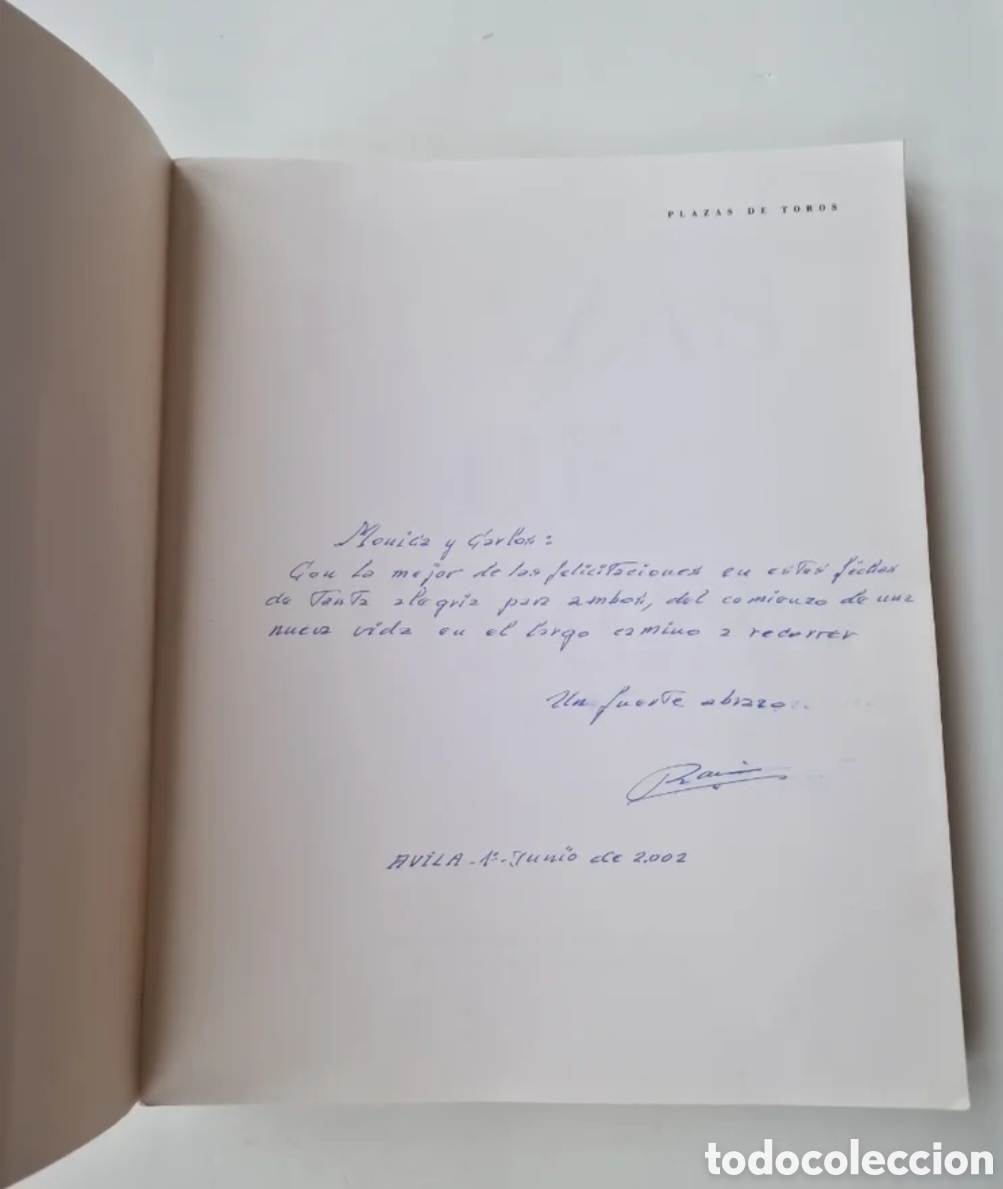 PLAZAS DE TOROS
Monica y Carlos:
Con lo mejor de las felicitaciones en estas fechas
de tanta alegria para ambos, del comienzo de una
nueva vida en el largo camino a recorrer
Un fuerte abrazo
AVILA - 1º - Junio de 2.002
todocoleccion